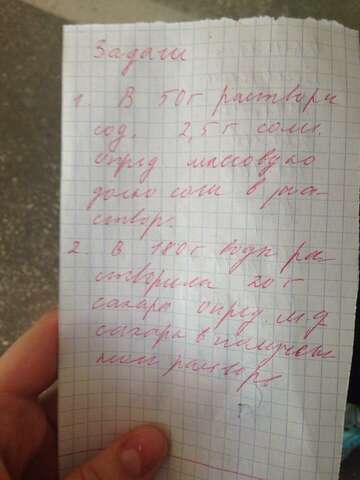 Задачи
1. В 50 г раствора
сод. 2,5 г соли.
опред массовую
долю соли в рас-
творе.
2. В 180 г воды ра-
створили 20 г
сахара опред. м.д
сахара в получен
ном растворе